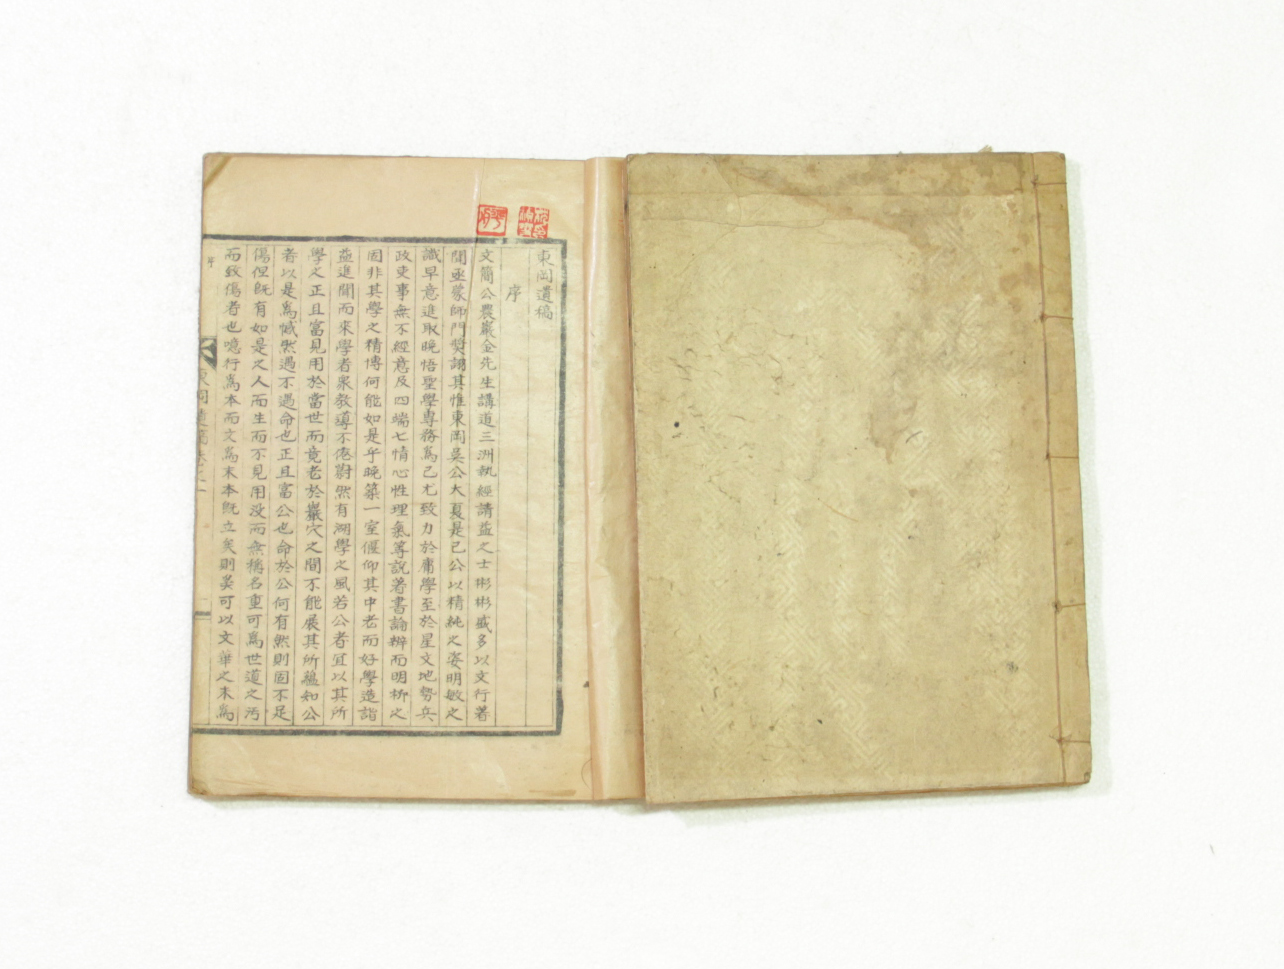 東岡遺稿
序
文簡公農巖金先生講道三洲執經請益之士彬彬盛多以文行著
聞亟蒙師門奬詡其惟東岡吳公大夏是已公以精純之姿明敏之
識早意進取晩悟聖學專務爲己尤致力於庸學至於星文地勢兵
政吏事無不經意及四端七情心性理氣等說著書論辨而明柳之
固非其學之精博何能如是乎晩築一室偃仰其中老而好學造詣
益進聞而來學者衆敎導不倦蔚然有湖學之風若公者宜以其所
學之正且富見用於當世而竟老於巖穴之間不能展其所蘊知公
者以是爲憾然遇不遇命也正且富公也命於公何有然則固不足
傷但旣有如是之人而生而不見用没而無稱名重可爲世道之汚
而致傷者也噫行爲本而文爲末本旣立矣則奚可以文華之末爲
序
東岡遺稿卷之一